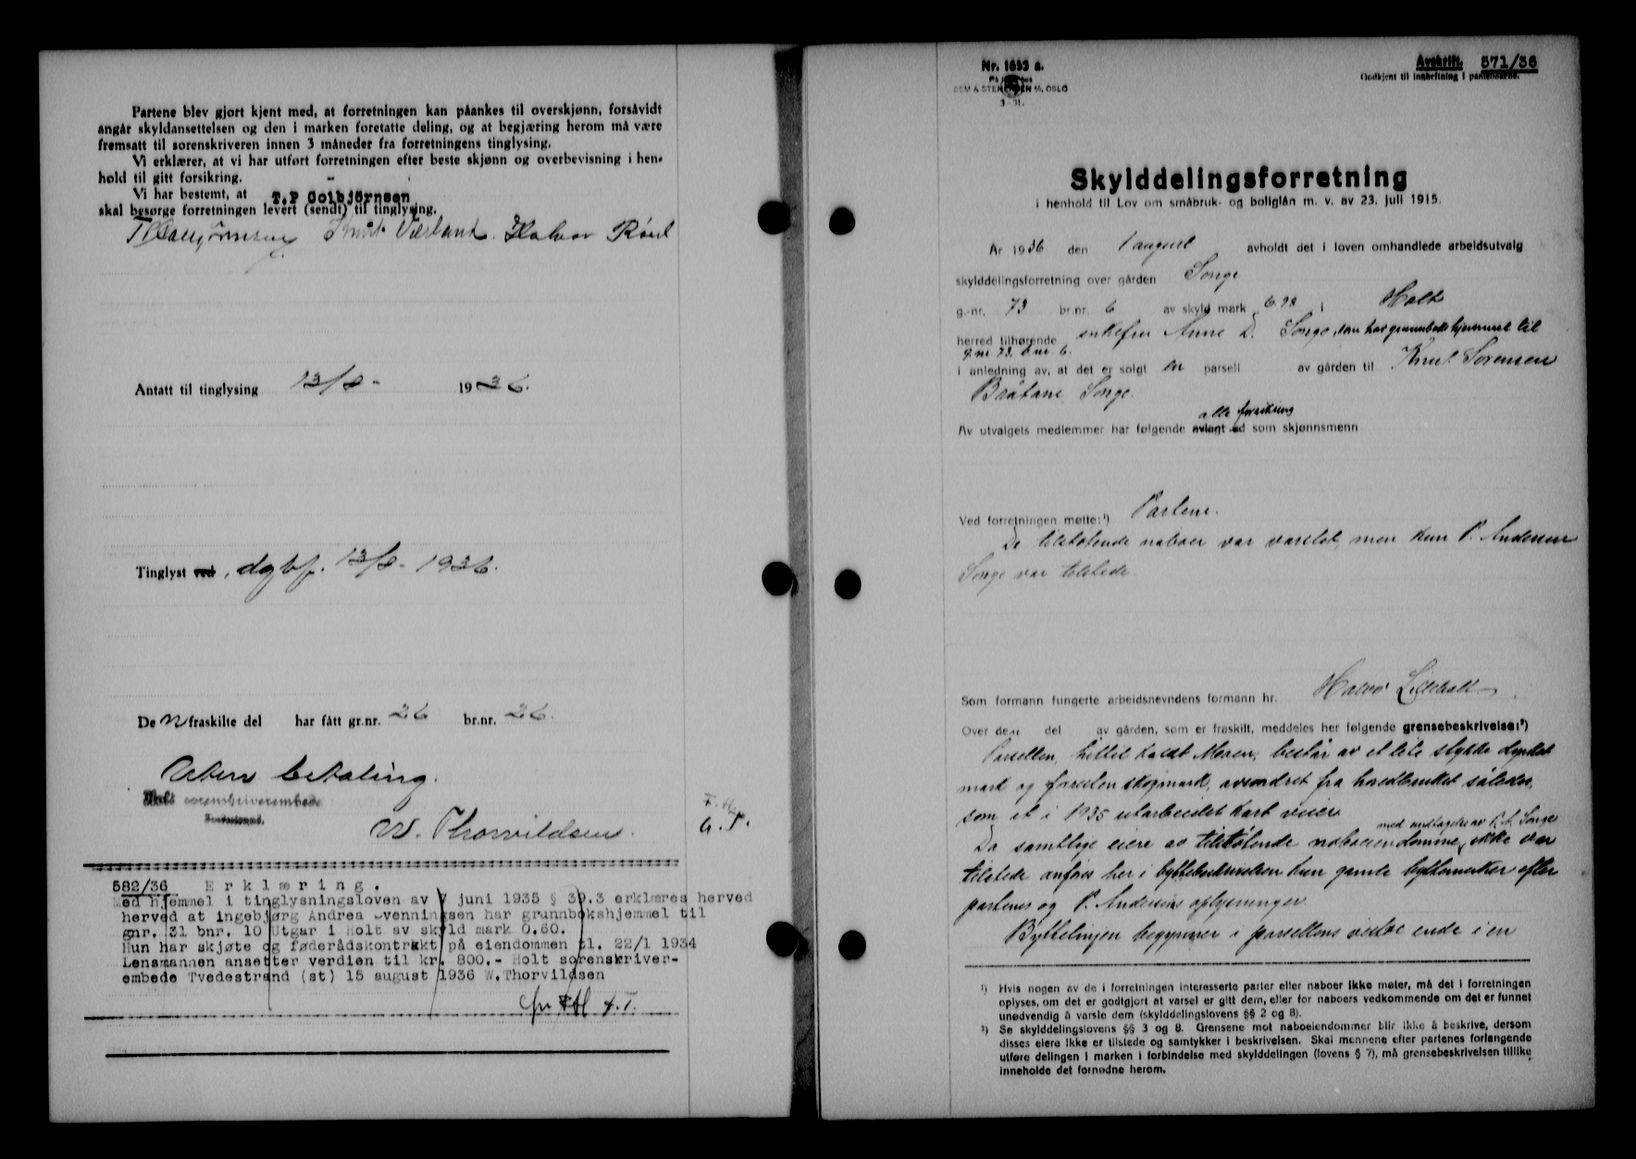 Partene blev gjort kjent med, at forretningen kan påankes til overskjønn, forsåvidt
angår skyldansettelsen og den i marken foretatte deling, og at begjæring herom må være
fremsatt til sorenskriveren innen 3 måneder fra forretningens tinglysing.
Vi erklærer, at vi har utført forretningen efter beste skjønn og overbevisning i hen-
hold til gitt forsikring.
Vi har bestemt, at T.P Golbjörnsen
skal besørge forretningen levert (sendt) til tinglysing.
Knut Værland. Halvor
Antatt til tinglysing 13/8- 1936.
Tinglyst ved, dgbf. 13/8- 1936.
De n fraskilte del har fått gr.nr. 26 br.nr. 26.
Uten betaling.
Holt sorenskriverembede
Tvedestrand.
W. Thorvildsen.
582/36 Erklæring.
Med hjemmel i tinglysningsloven av 7 juni 1935 § 39.3 erklæres herved
herved at ingebjørg Andrea Svenningsen har grunnbokshjemmel til
gnr. 31 bnr. 10 Utgar i Holt av skyld mark 0.60.
Hun har skjøte og føderådskontrakt på eiendommen tl. 22/1 1934
Lensmannen ansetter verdien til kr. 800.- Holt sorenskriver-
embede Tvedestrand (st) 15 august 1936 W.Thorvildsen
Nr. 1633 a.
OSLO
3-31.
Avskrift. 571/36
Godkjent til innheftning i pantebøkene.
Skylddelingsforretning
i henhold til Lov om småbruk- og boliglån m. v. av 23. juli 1915.
År 1936 den 1 august avholdt det i loven omhandlede arbeidsutvalg
skylddelingsforretning over gården Songe
g.-nr. 73 br.nr. 6 av skyld mark 6.98 i Holt
herred tilhørende enkefru Anne D. Songe, som har grunnbokshjemmel til
g.nr. 73. b.nr. 6.
i anledning av, at det er solgt en parsell av gården til Knut Sørensen
Bråtane Songe.
Av utvalgets medlemmer har følgende avlagt ed som skjønnsmenn
forsikring
Ved forretningen møtte:¹) Partene.
De tilstøtende naboer var varslet, men kun P. Andersen
Songe var tilstede.
Som formann fungerte arbeidsnevndens formann hr. Halvor Lilleholt
Over den del av gården, som er fraskilt, meddeles her følgende grensebeskrivelse:²)
Parsellen, kaldt Moren, består av et lite stykke dyrket
mark og forresten skogmark, avsondret fra hovedbruket således,
som et i 1935 utarbeidet kart viser.
med undtagelse av P. A. Songe
Da samtlige eiere av tilstøtende naboeiendomme, ikke var
tilstede anføres her i byttebeskrivelsen kun gamle byttemerker efter
partenes og P. Andersens oplysninger.
Byttelinjen begynner i parsellens vestre ende i en
¹) Hvis nogen av de i forretningen interesserte parter eller naboer ikke møter, må det i forretningen
oplyses, om det er godtgjort at varsel er gitt dem, eller for naboers vedkommende om det er funnet
unødvendig å varsle dem (skylddelingslovens §§ 2 og 8).
²) Se skylddelingslovens §§ 3 og 8. Grensene mot naboeiendommer blir ikke å beskrive, dersom
disses eiere ikke er tilstede og samtykker i beskrivelsen. Skal mennene efter partenes forlangende
utføre delingen i marken i forbindelse med skylddelingen (lovens § 7), må grensebeskrivelsen tillike
inneholde det fornødne herom.